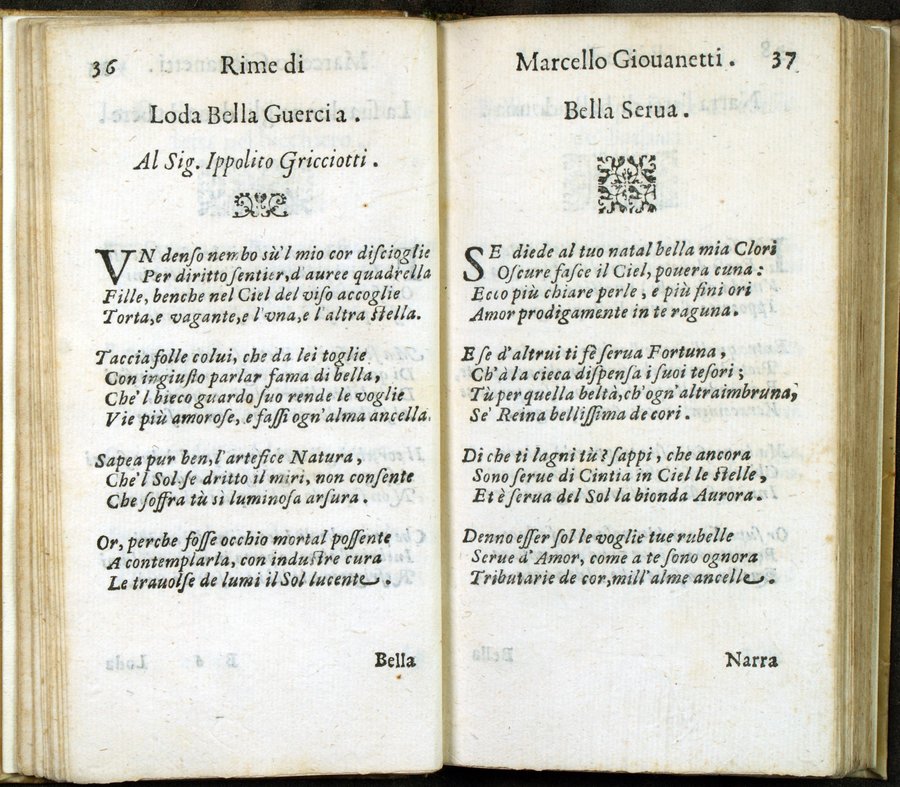 36 Rime di
Loda Bella Guercia.
Al Sig. Ippolito Gricciotti.
VN denso nembo sù'l mio cor discioglie
Per diritto sentier, d auree quadrella
Fille, benche nel Ciel del viso accoglie
Torta, e vagante, e l'vna, e l'altra stella.
Taccia folle colui, che da lei toglie
Con ingiusto parlar fama di bella,
Che'l bieco guardo suo rende le voglie
Vie più amorose, e fassi ogn'alma ancella.
Sapea pur ben, l'artefice Natura,
Che'l Sol se dritto il miri, non consente
Che soffra tù sì luminosa arsura.
Or, perche fosse occhio mortal possente
A contemplarla, con industre cura
Le trauolse de lumi il Sol lucente.
Bella
Marcello Giouanetti. 37
Bella Serua.
SE diede al tuo natal bella mia Clori
Oscure fasce il Ciel, pouera cuna:
Ecco più chiare perle, e più fini ori
Amor prodigamente in te raguna.
E se d'altrui ti fè serua Fortuna,
Ch'à la cieca dispensa i suoi tesori;
Tù per quella beltà, ch'ogn'altra imbruna,
Se' Reina bellissima de cori.
Di che ti lagni tù? sappi, che ancora
Sono serue di Cintia in Ciel le stelle,
Et è serua del Sol la bionda Aurora.
Denno esser sol le voglie tue rubelle
Serue d'Amor, come a te sono ognora
Tributarie de cor, mill'alme ancelle.
Narra